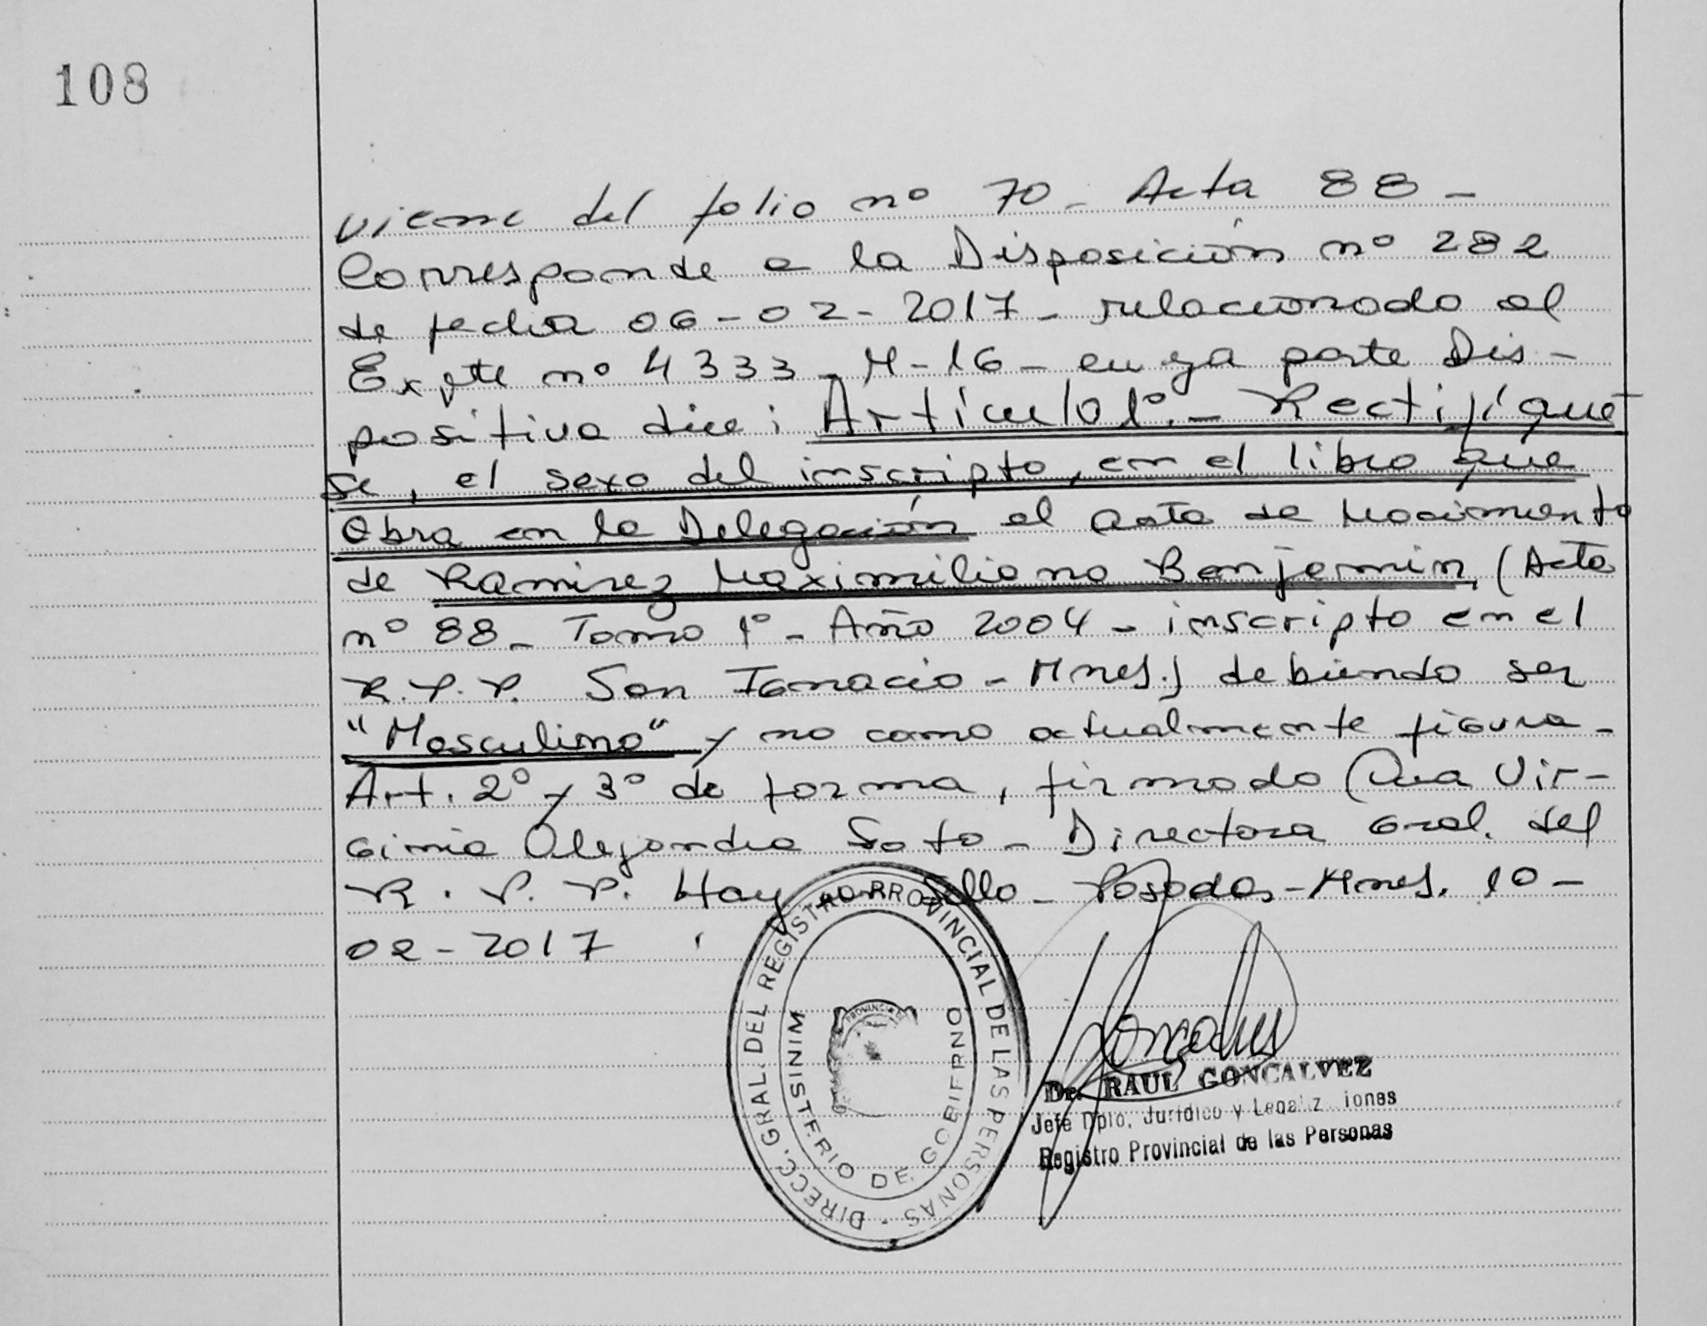 108
viene del folio nº 70 - Acta 88 -
Corresponde a la Disposición nº 282
de fecha 06-02-2017- relacionado al
Expte nº 4333-M-16- cuya parte Dis-
positiva dice: Artículo 1º.- Rectifíque
se, el sexo del inscripto, en el libro que
Obra en la Delegación el acta de Nacimiento
de Ramirez Maximiliano Benjamin (Acta
nº 88- Tomo 1º- Año 2004- inscripto en el
R.P.P. San Ignacio - Mnes.) debiendo ser
"Masculino" y no como actualmente figura-
Art. 2º y 3º de forma, firmado Dra Vir-
ginia Alejandra Soto- Directora Gral. del
R.P.P. Hay un Sello- Posadas-Mnes. 10-
02-2017
DIRECC. GRAL. DEL REGISTRO PROVINCIAL DE LAS PERSONAS
MINISTERIO DE GOBIERNO
PROVINCIA DE
Dr. RAUL GONCALVEZ
Jefe Dpto. Jurídico y Legaliz iones
Registro Provincial de las Personas